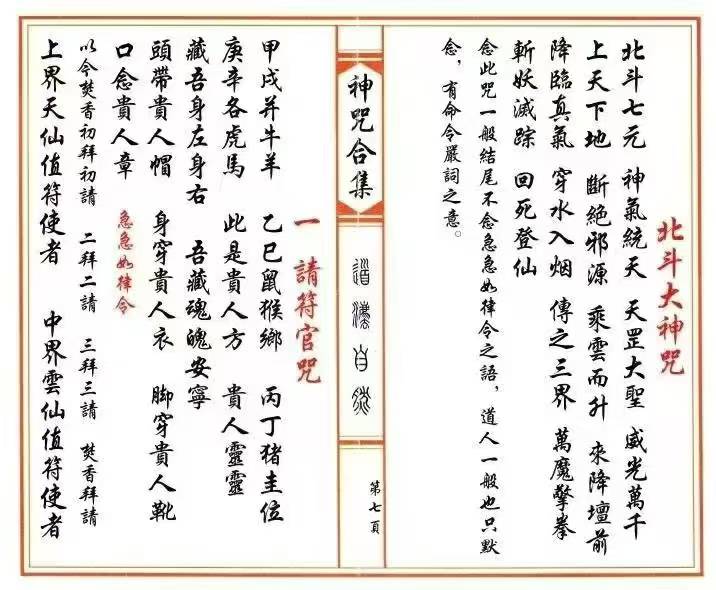 北斗大神咒
北斗七元 神氣統天 天罡大聖 威光萬千
上天下地 斷絕邪源 乘雲而升 來降壇前
降臨真氣 穿水入烟 傳之三界 萬魔擎拳
斬妖滅踪 回死登仙
念此咒一般結尾不念急急如律令之語，道人一般也只默
念，有命令嚴詞之意。
神咒合集
道法自然
第七頁
一 請符官咒
甲戌并牛羊 乙巳鼠猴鄉 丙丁猪圭位
庚辛各虎馬 此是貴人方 貴人靈靈
藏吾身左身右 吾藏魂魄安寧
頭帶貴人帽 身穿貴人衣 脚穿貴人靴
口念貴人章 急急如律令
以今焚香初拜初請 二拜二請 三拜三請 焚香拜請
上界天仙值符使者 中界雲仙值符使者